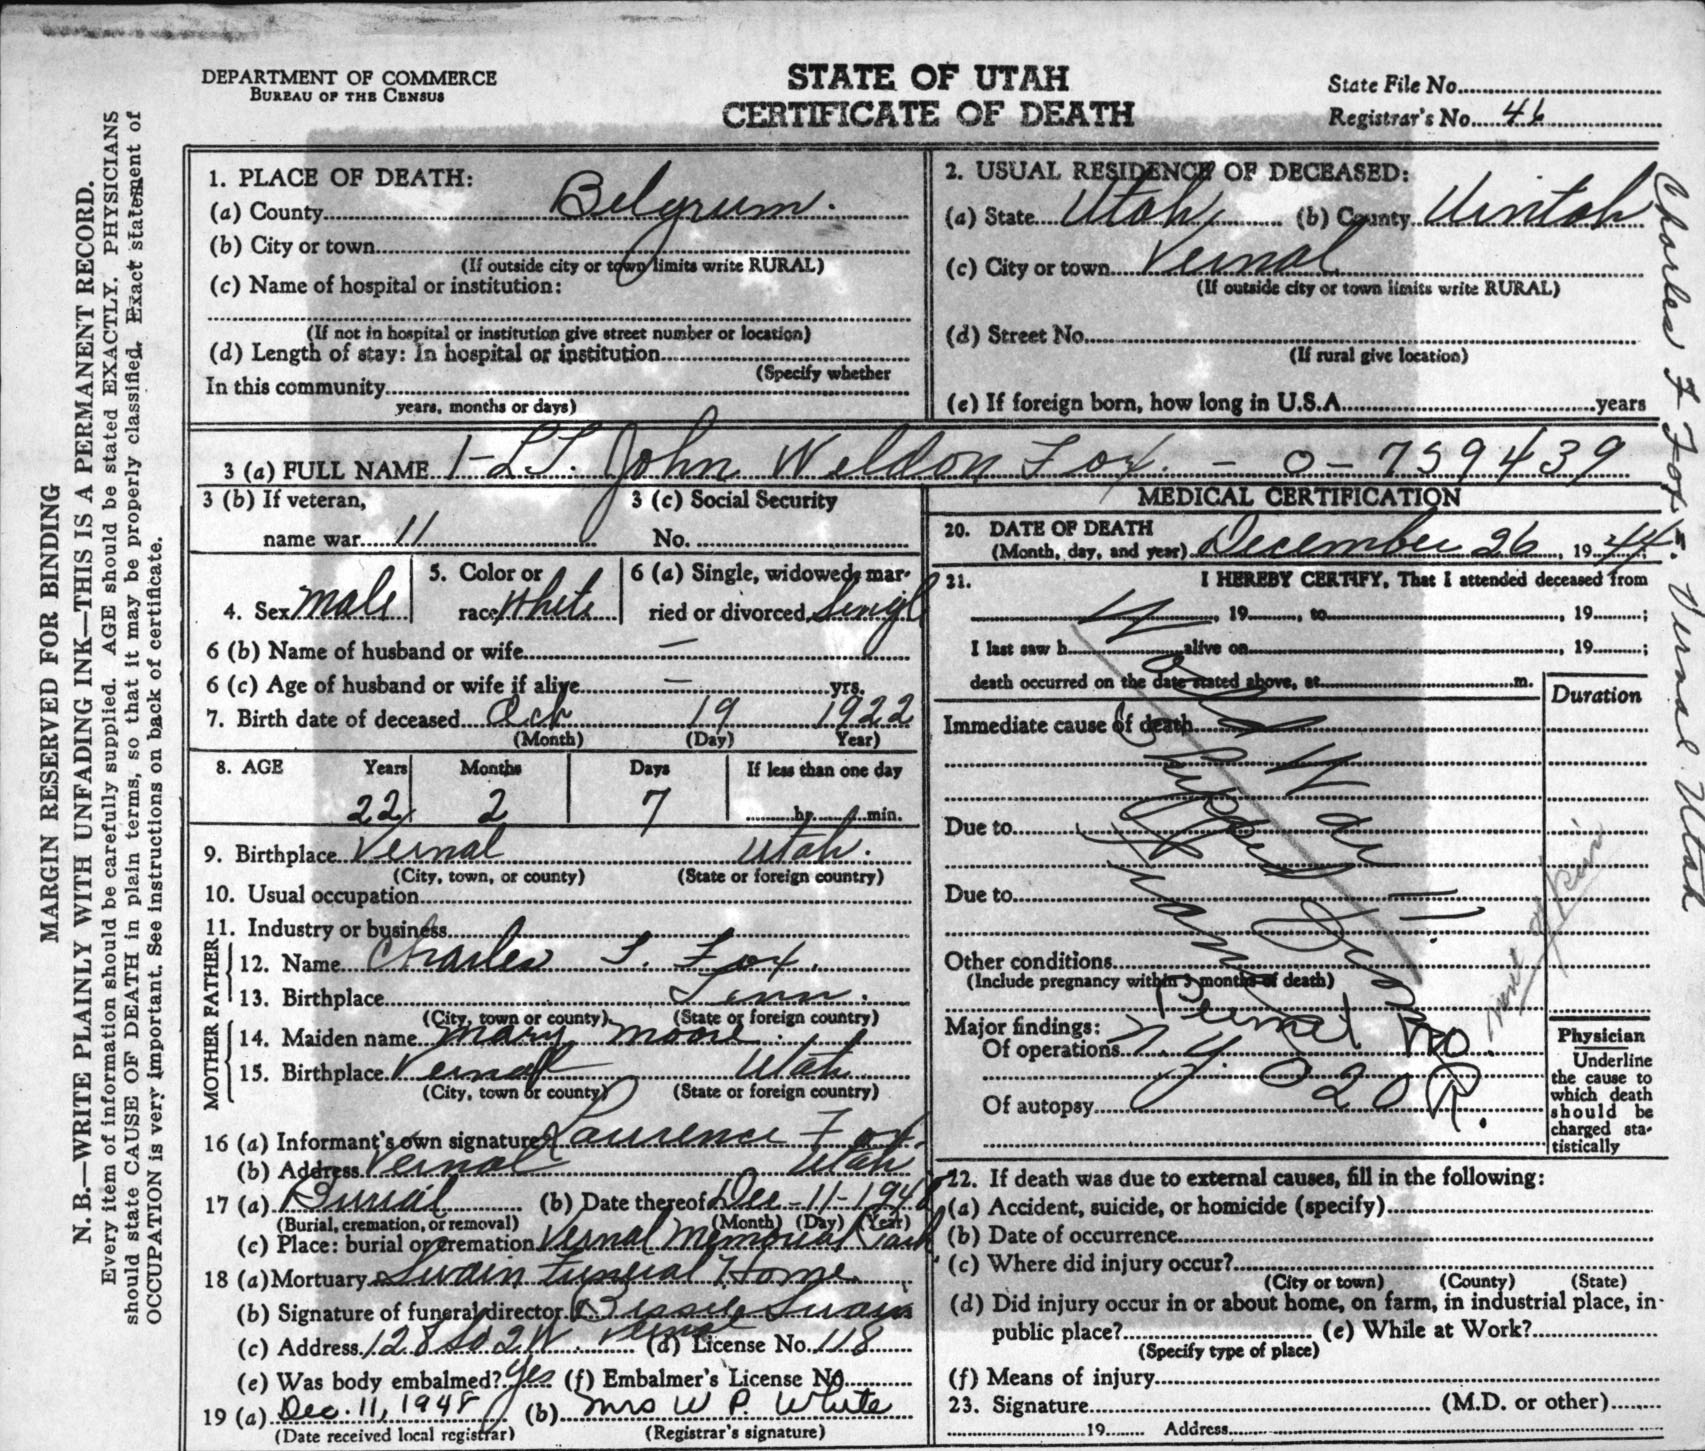 DEPARTMENT OF COMMERCE
BUREAU OF THE CENSUS
STATE OF UTAH
CERTIFICATE OF DEATH
State File No.
Registrar's No. 46
MARGIN RESERVED FOR BINDING
N. B.—WRITE PLAINLY WITH UNFADING INK—THIS IS A PERMANENT RECORD.
Every item of information should be carefully supplied. AGE should be stated EXACTLY. PHYSICIANS
should state CAUSE OF DEATH in plain terms, so that it may be properly classified. Exact statement of
OCCUPATION is very important. See instructions on back of certificate.
1. PLACE OF DEATH:
(a) County Belgrum.
(b) City or town
(If outside city or town limits write RURAL)
(c) Name of hospital or institution:
(If not in hospital or institution give street number or location)
(d) Length of stay: In hospital or institution
(Specify whether
In this community
years, months or days)
2. USUAL RESIDENCE OF DECEASED:
(a) State Utah (b) County Uintah
(c) City or town Vernal
(If outside city or town limits write RURAL)
(d) Street No.
(If rural give location)
(e) If foreign born, how long in U.S.A. years
3 (a) FULL NAME 1-LT. John Weldon Fox. - 0-759439
3 (b) If veteran,
name war 11
3 (c) Social Security
No.
4. Sex Male
5. Color or
race White
6 (a) Single, widowed, mar-
ried or divorced Singl
6 (b) Name of husband or wife —
6 (c) Age of husband or wife if alive — yrs.
7. Birth date of deceased Oct 19 1922
(Month) (Day) Year)
8. AGE Years Months Days If less than one day
22 2 7 hr. min.
9. Birthplace Vernal Utah.
(City, town, or county) (State or foreign country)
10. Usual occupation
11. Industry or business
FATHER
12. Name Charles F. Fox.
13. Birthplace Tenn.
(City, town or county) (State or foreign country)
MOTHER
14. Maiden name Mary Moore.
15. Birthplace Vernal Utah
(City, town or county) (State or foreign country)
16 (a) Informant's own signature Laurence Fox.
(b) Address Vernal Utah
17 (a) Burial (b) Date thereof Dec-11-1948
(Burial, cremation, or removal) (Month) (Day) (Year)
(c) Place: burial or cremation Vernal Memorial Park
18 (a) Mortuary Swain Funeral Home
(b) Signature of funeral director Bessie Swain
(c) Address 128 So 2 W Vernal (d) License No. 118
(e) Was body embalmed? Yes (f) Embalmer's License No.
19 (a) Dec. 11, 1948 (b) Mrs W P. White
(Date received local registrar) (Registrar's signature)
MEDICAL CERTIFICATION
20. DATE OF DEATH
(Month, day, and year) December 26, 1944
21. I HEREBY CERTIFY, That I attended deceased from
, 19 , to , 19 ;
I last saw h alive on , 19 ;
death occurred on the date stated above, at m.
Duration
Immediate cause of death
Due to
Due to
Other conditions
(Include pregnancy within 3 months of death)
Major findings:
Of operations
Of autopsy
Physician
Underline
the cause to
which death
should be
charged sta-
tistically
22. If death was due to external causes, fill in the following:
(a) Accident, suicide, or homicide (specify)
(b) Date of occurrence
(c) Where did injury occur?
(City or town) (County) (State)
(d) Did injury occur in or about home, on farm, in industrial place, in
public place? (e) While at Work?
(Specify type of place)
(f) Means of injury
23. Signature (M.D. or other)
19 Address
Charles F Fox Sr. Vernal Utah